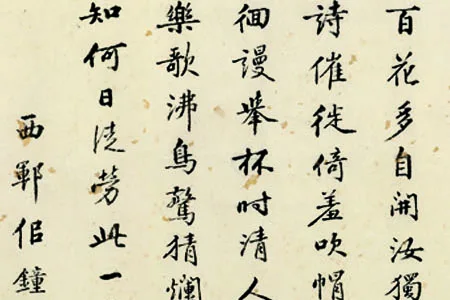 百花多自開汝獨
詩催徙倚羞吹帽
徊謾舉杯時清人
樂歌沸鳥驚猜爛
知何日徒勞此一
西鄆佀鐘